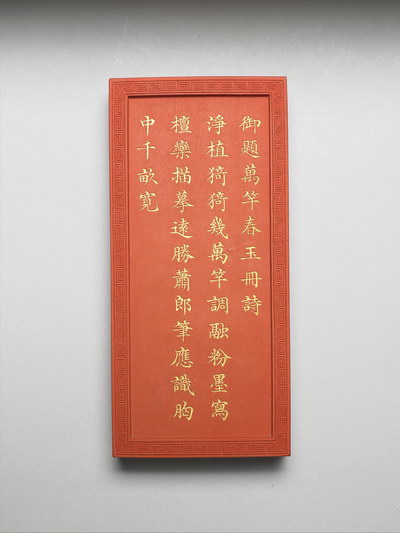 御題萬竿春玉冊詩
淨植猗猗幾萬竿調融粉墨寫
檀欒描摹遠勝蕭郎筆應識胸
中千畝寬